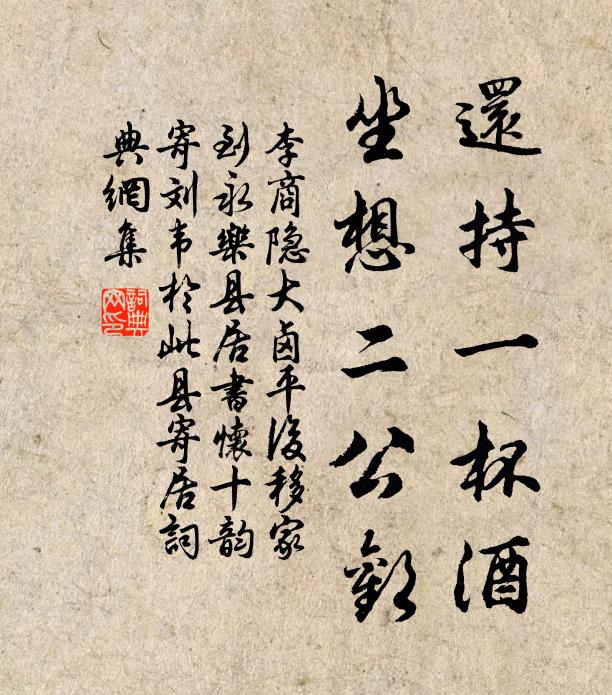 還持一杯酒
坐想二公歡
李商隐大卤平後移家
到永樂县居書懷十韵
寄刘韦於此县寄居詞
典網集
詞典
网印